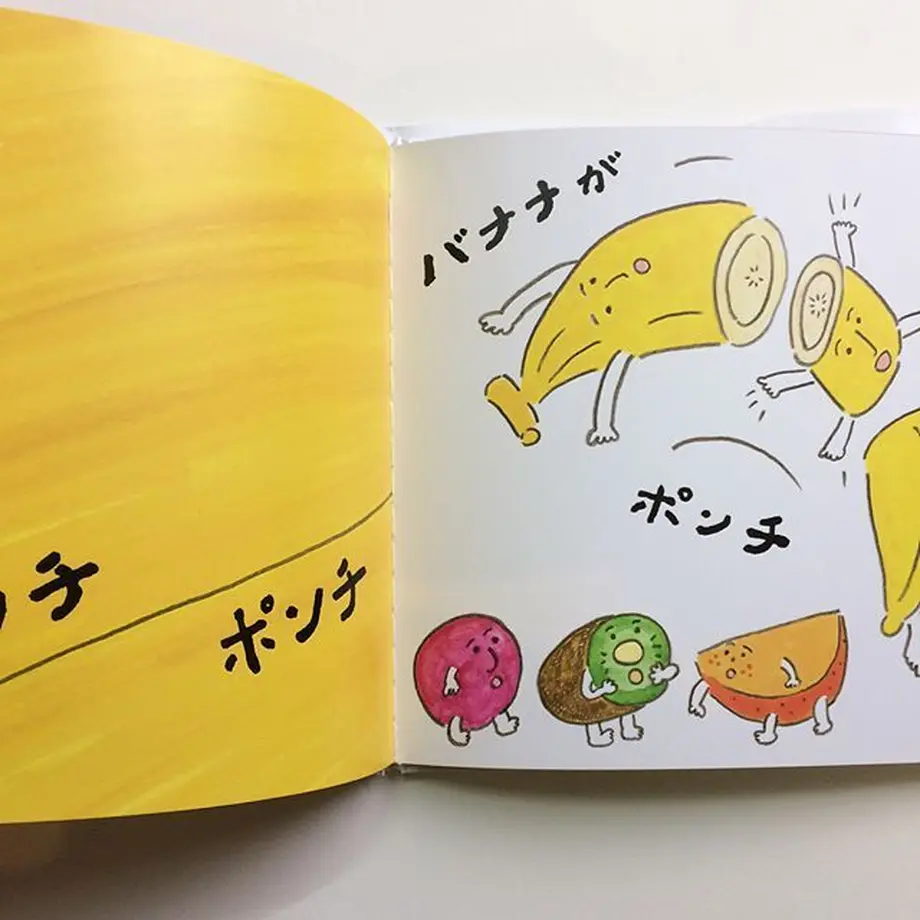 ンチ
ポンチ
バナナが
ポンチ